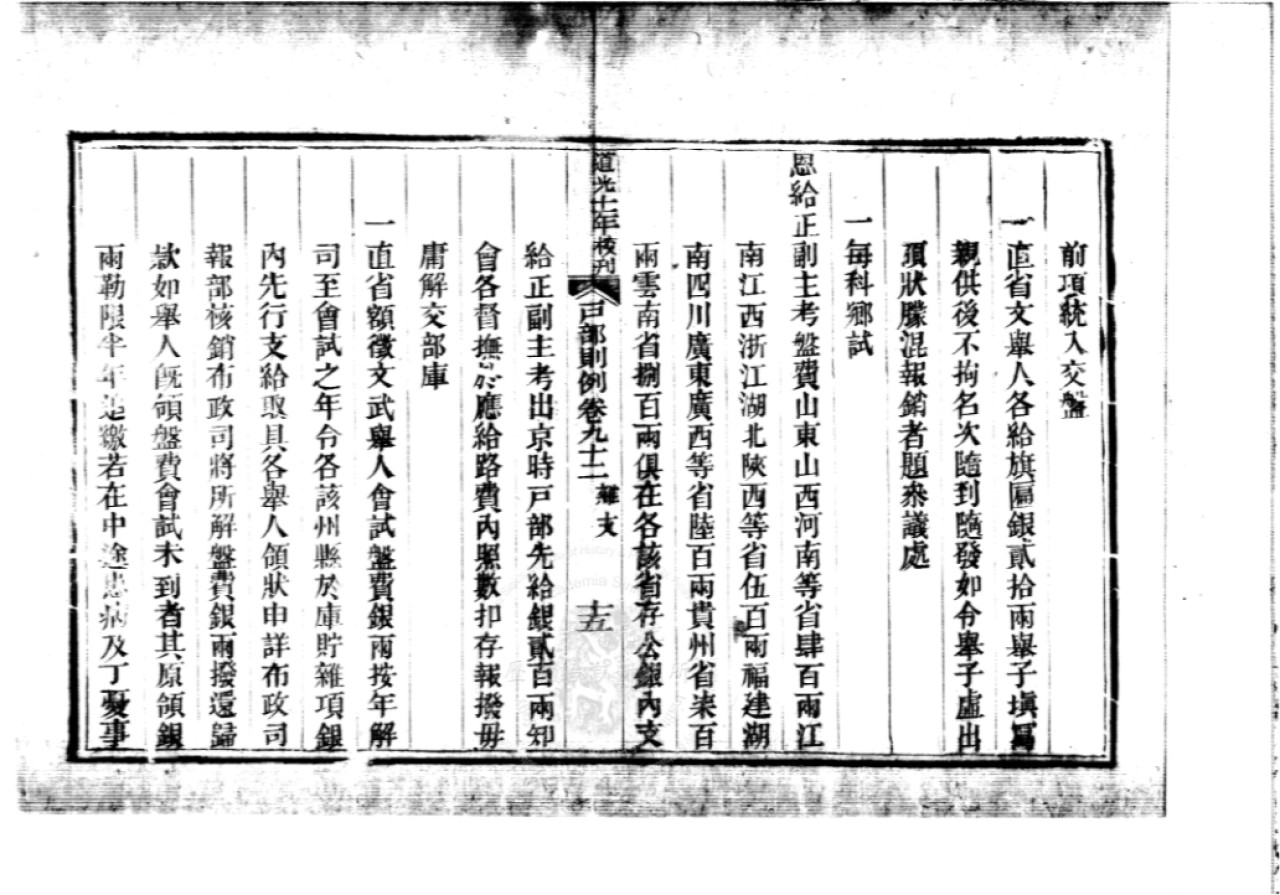 前項統入交盤
一直省文舉人各給旗匾銀貳拾兩舉子填寫
親供後不拘名次隨到隨發如令舉子虛出
領狀朦混報銷者題叅議處
一每科鄉試
恩給正副主考盤費山東山西河南等省肆百兩江
南江西浙江湖北陝西等省伍百兩福建湖
南四川廣東廣西等省陸百兩貴州省柒百
兩雲南省捌百兩俱在各該省存公銀內支
道光十一年校刊
戸部則例卷九十二
雜支
十五
給正副主考出京時戸部先給銀貳百兩知
會各督撫於應給路費內照數扣存報撥毋
庸解交部庫
一直省額徵文武舉人會試盤費銀兩按年解
司至會試之年令各該州縣於庫貯雜項銀
內先行支給取具各舉人領狀申詳布政司
報部核銷布政司將所解盤費銀兩撥還歸
款如舉人旣領盤費會試未到者其原領銀
兩勒限半年追繳若在中途患病及丁憂事